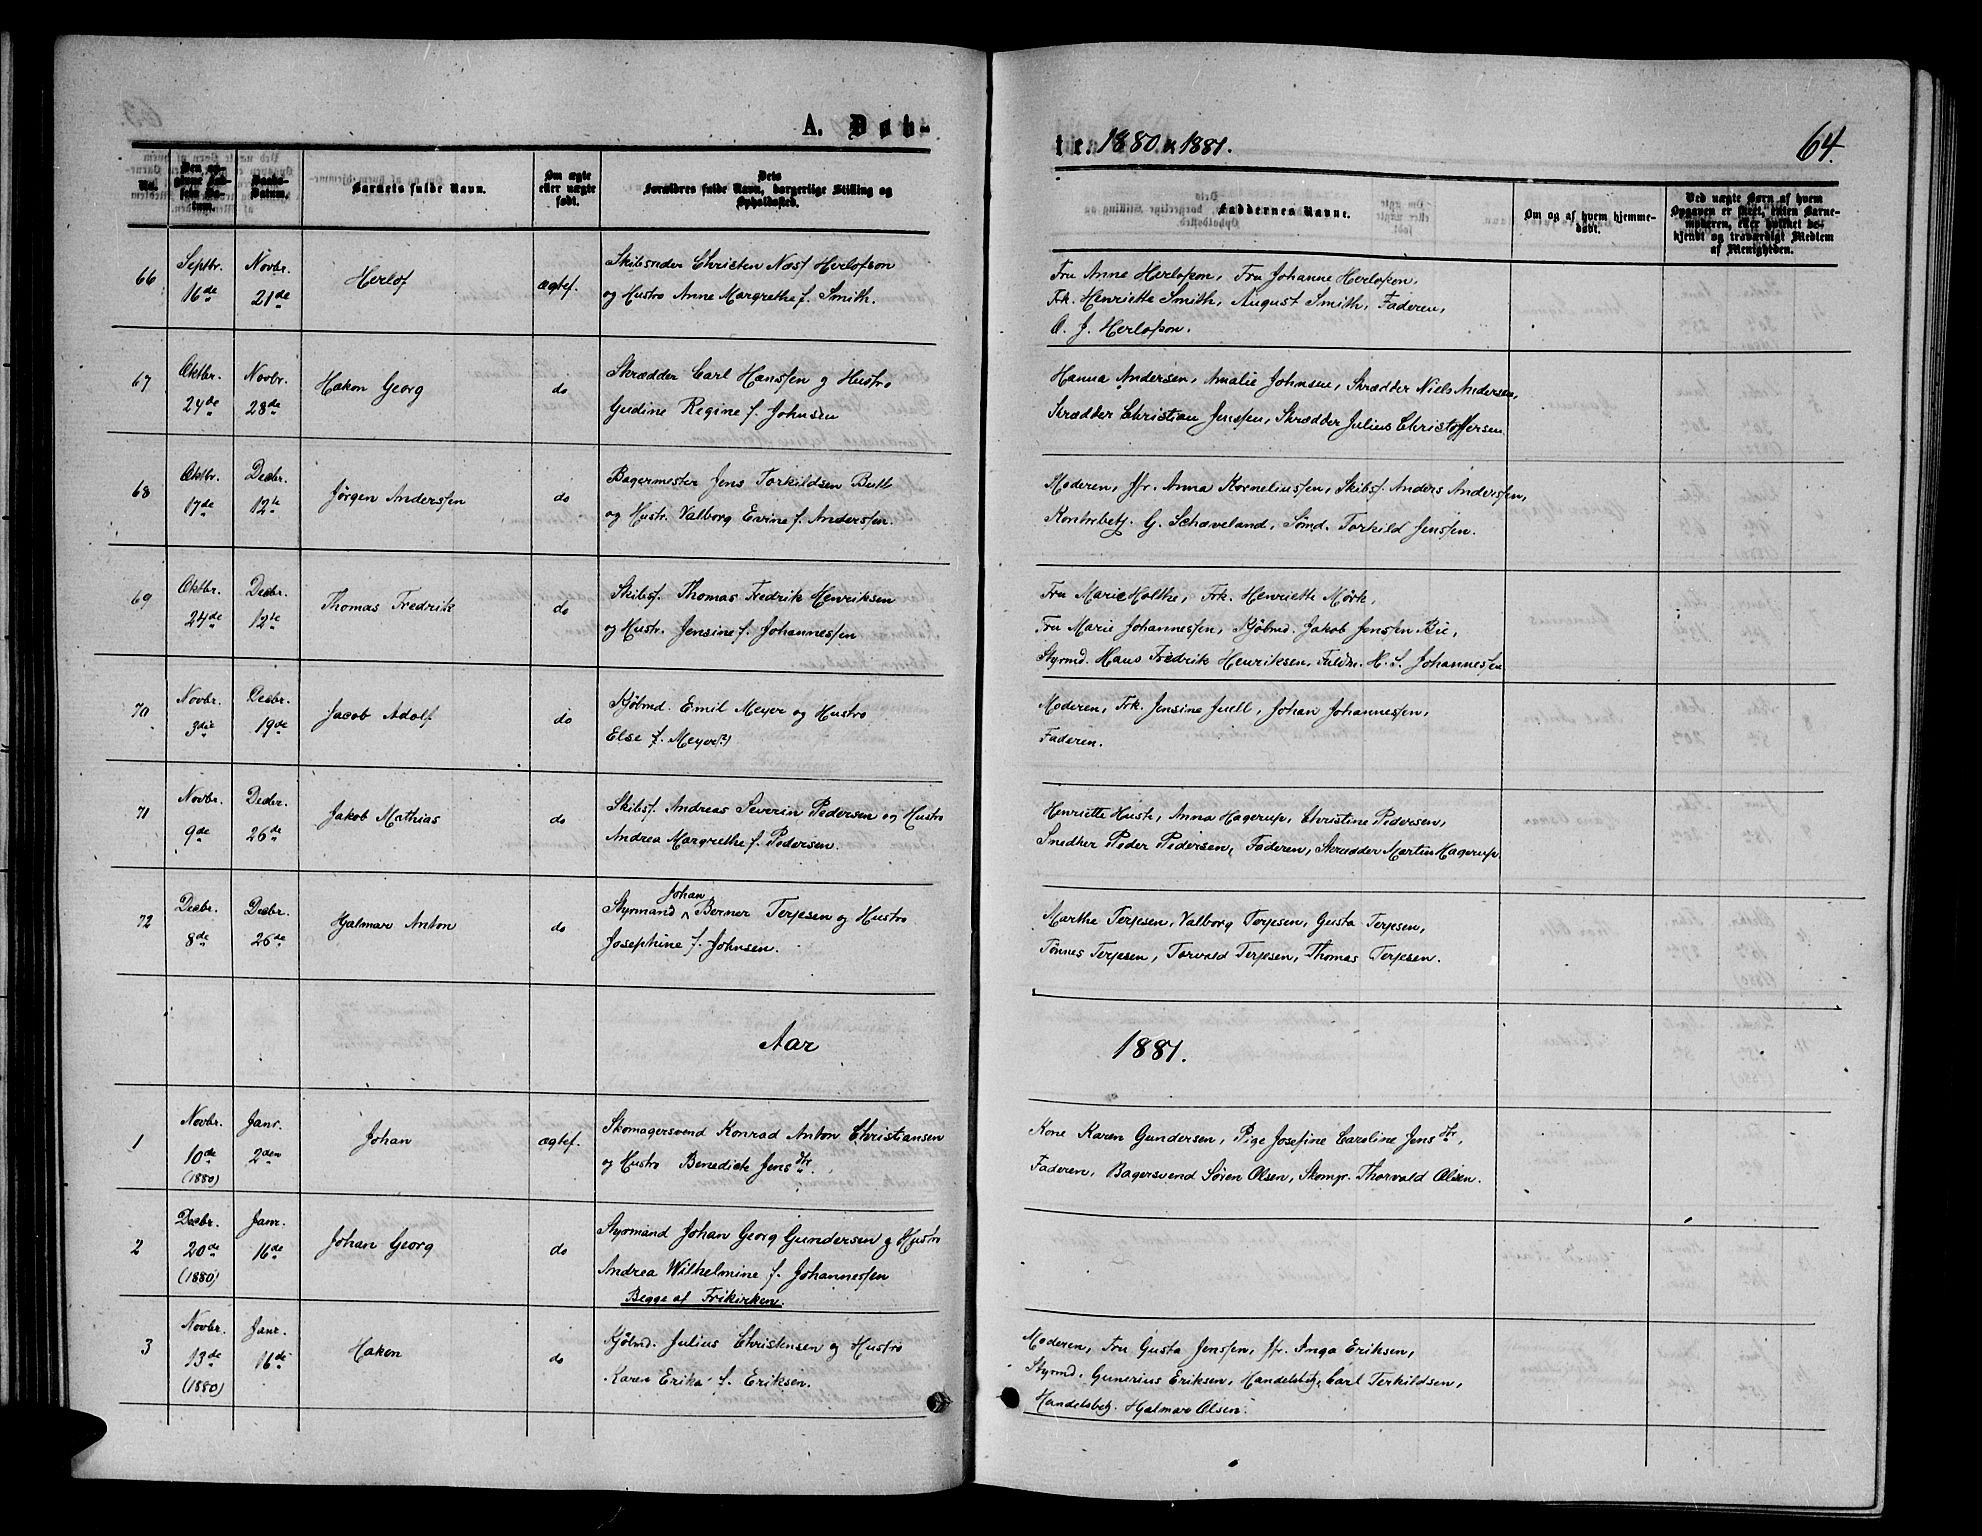 A. Døb-
te. 1880 & 1881.
64.
No.
Den opgivne Fødsels Datum.
Daabs-Datum.
Barnets fulde Navn.
Om ægte eller uægte født.
Dets Forældres fulde Navn, borgerlige Stilling og Opholdssted.
Faddernes Navne.
Om og af hvem hjemmedøbt.
Ved uægte Børn af hvem Opgaven er skeet, enten Barnemoderen, eller hvilket bekjendt og troværdigt Medlem af Menigheden.
66 Septbr. 16de Novbr. 21de Herlof ægtef.
Skibsreder Christen Næss Herlofson
og Hustro Anne Margrethe f. Smith.
Fru Anne Herlofson, Fru Johanne Herlofson,
Frk. Henriette Smith, August Smith, Faderen,
O. J. Herlofson.
67 Oktbr. 24de Novbr. 28de Hakon Georg do
Skrædder Carl Hanssen og Hustro
Gudine Regine f. Johnsen
Hanna Andersen, Amalie Johnsen, Skrædder Niels Andersen,
Skrædder Christian Jenssen, Skrædder Julius Christoffersen.
68 Oktbr. 17de Decbr. 12te Jörgen Anderssen do
Bagermester Jens Torkildsen Buth
og Hustr. Valborg Evine f. Anderssen.
Moderen, Jfr. Anna Korneliussen, Skibsf. Anders Anderssen,
Kontorbetj. G. Schaveland, Sömd. Torkild Jenssen.
69 Oktbr. 24de Decbr. 12te Thomas Fredrik do
Skibsf. Thomas Fredrik Henriksen
og Hustr. Jensine f. Johannessen
Fru Marie Holthe, Frk. Henriette Mörk,
Fru Marie Johannessen, Kjöbmd. Jakob Jenssen Bie,
Styrmd. Hans Fredrik Henriksen, Fuldm. H. S. Johannessen
70 Novbr. 3die Decbr. 19de Jacob Adolf do
Kjöbmd. Emil Meyer og Hustro
Else f. Meyer(?)
Moderen, Frk. Jensine Juell, Johan Johannessen,
Faderen.
71 Novbr. 9de Decbr. 26de Jakob Mathias do
Skibsf. Andreas Severin Pedersen og Hustro
Andrea Margrethe f. Pedersen.
Henriette Husth, Anna Hagerup, Christine Pedersen,
Snedker Peder Pedersen, Faderen, Skrædder Martin Hagerup
72 Decbr. 8de Decbr. 26de Hjalmar Anton do
Johan
Styrmand Berner Terjesen og Hustro
Josephine f. Johnsen.
Marthe Terjesen, Valborg Terjesen, Gusta Terjesen,
Tönnes Terjesen, Torvald Terjesen, Thomas Terjesen.
Aar 1881.
1 Novbr. 10de (1880) Janr. 2den Johan ægtef.
Skomagersvend Konrad Anton Christiansen
og Hustro Benedicte Jensdtr.
Kone Karen Gundersen, Pige Josefine Caroline Jensdtr,
Faderen, Bagersvend Sören Olsen, Skomgr. Thorvald Olsen.
2 Decbr. 20de (1880) Janr. 16de Johan Georg do
Styrmand Johan Georg Gundersen og Hustro
Andrea Wilhelmine f. Johannessen
Begge af Frikirken.
3 Novbr. 13de (1880) Janr. 16de Hakon do
Kjöbmd. Julius Christensen og Hustro
Karen Erika f. Eriksen.
Moderen, Fru Gusta Jenssen, Jfr. Inga Eriksen,
Styrmd. Gunerius Eriksen, Handelsbetj. Carl Terkildsen,
Handelsbetj. Hjalmar Olsen.